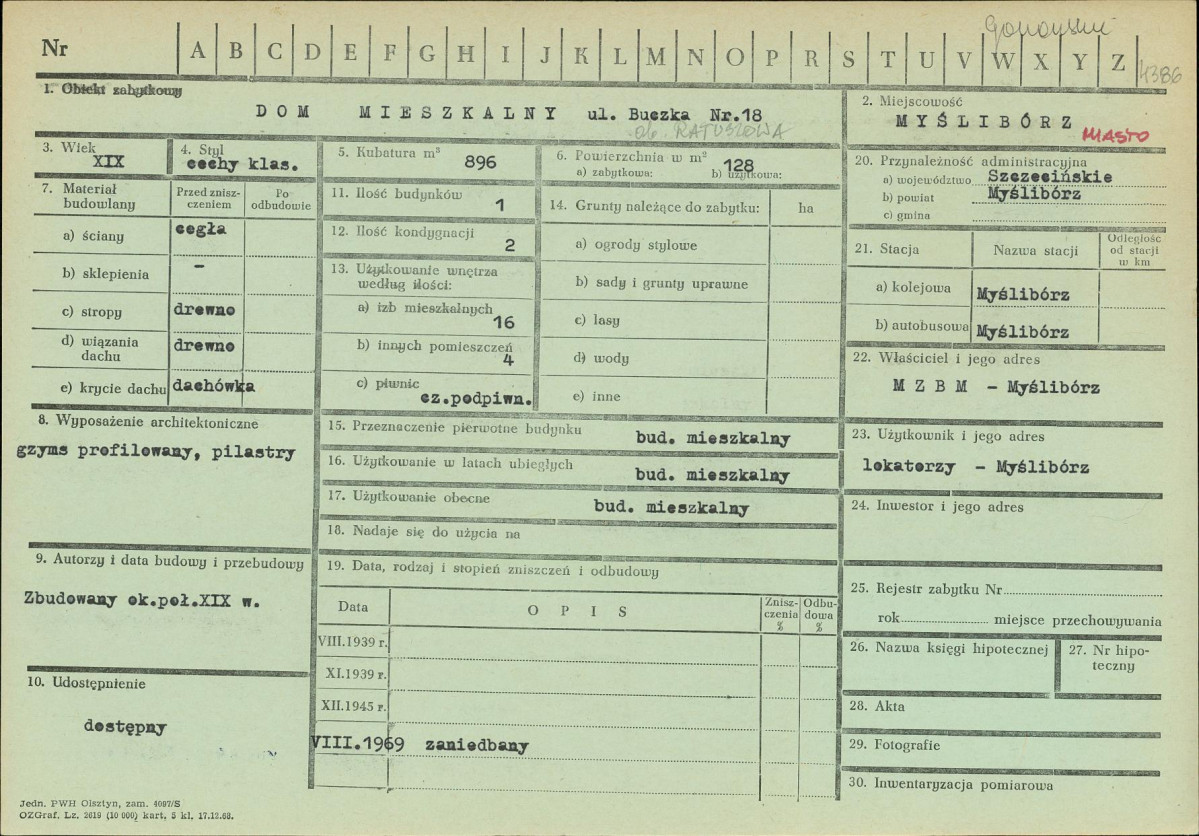 Nr A B C D E F G H I J K L M N O P R S T U V W X Y Z
4386
1. Obiekt zabytkowy
DOM MIESZKALNY ul. Buczka Nr.18
ob. RATUSZOWA
2. Miejscowość
MYŚLIBÓRZ
MIASTO
3. Wiek
XIX
4. Styl
cechy klas.
5. Kubatura m³ 896
6. Powierzchnia w m² 128
a) zabytkowa: b) użytkowa:
7. Materiał budowlany
Przed zniszczeniem
Po odbudowie
a) ściany cegła
b) sklepienia –
c) stropy drewno
d) wiązania dachu drewno
e) krycie dachu dachówka
8. Wyposażenie architektoniczne
gzyms profilowany, pilastry
9. Autorzy i data budowy i przebudowy
Zbudowany ok.poł.XIX w.
10. Udostępnienie
dostępny
11. Ilość budynków 1
12. Ilość kondygnacji 2
13. Użytkowanie wnętrza
według ilości:
a) izb mieszkalnych 16
b) innych pomieszczeń 4
c) piwnic
cz.podpiwn.
14. Grunty należące do zabytku: ha
a) ogrody stylowe
b) sady i grunty uprawne
c) lasy
d) wody
e) inne
15. Przeznaczenie pierwotne budynku bud. mieszkalny
16. Użytkowanie w latach ubiegłych bud. mieszkalny
17. Użytkowanie obecne bud. mieszkalny
18. Nadaje się do użycia na
19. Data, rodzaj i stopień zniszczeń i odbudowy
Data OPIS Zniszczenia % Odbudowa %
VIII.1939 r.
XI.1939 r.
XII.1945 r.
VIII.1969 zaniedbany
20. Przynależność administracyjna
a) województwo Szczecińskie
b) powiat Myślibórz
c) gmina
21. Stacja Nazwa stacji Odległość od stacji w km
a) kolejowa Myślibórz
b) autobusowa Myślibórz
22. Właściciel i jego adres
M Z B M – Myślibórz
23. Użytkownik i jego adres
lokatorzy – Myślibórz
24. Inwestor i jego adres
25. Rejestr zabytku Nr
rok miejsce przechowywania
26. Nazwa księgi hipotecznej
27. Nr hipoteczny
28. Akta
29. Fotografie
30. Inwentaryzacja pomiarowa
Jedn. PWH Olsztyn, zam. 4097/S
OZGraf. Lz. 2619 (10 000) kart, 5 kl. 17.12.68.